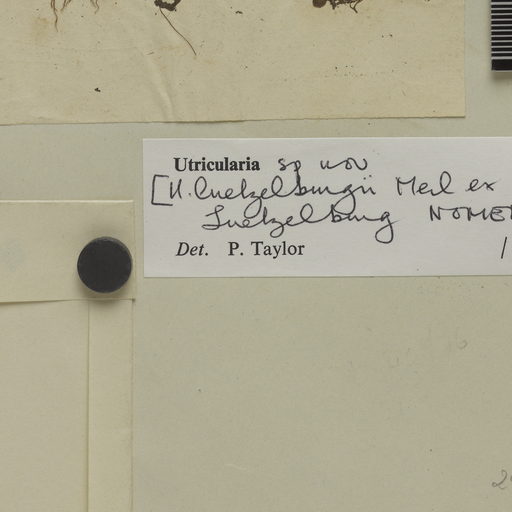 Utricularia sp nov
[U. luetzelburgii Merl ex
Luetzelburg NOMEN
Det. P. Taylor